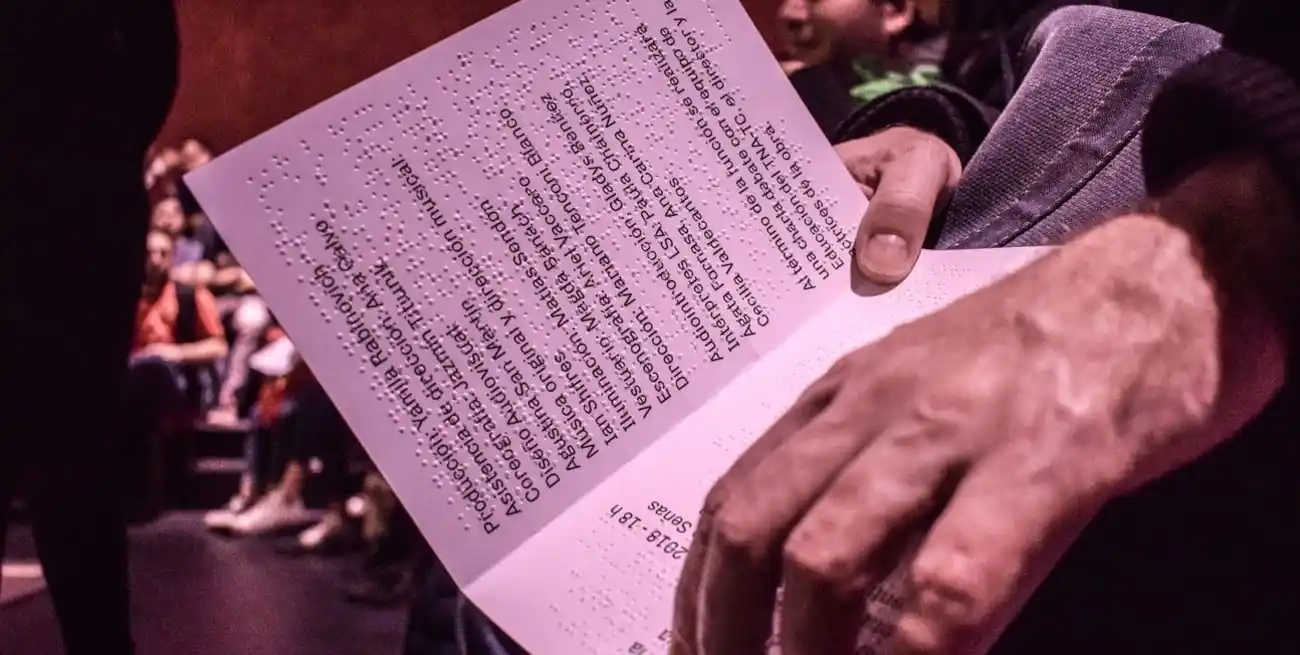 Producción: Yamila Rabinovich
Asistencia de dirección: Ana Calvo
Coreografía: Jazmín Titiunik
Diseño Audiovisual:
Agustina San Martín
Música original y dirección musical:
Ian Shifres
Iluminación: Matías Sendón
Vestuario: Magda Banach
Escenografía: Ariel Vaccaro
Dirección: Mariano Tenconi Blanco
Audiointroducción: Gladys Benítez
Intérpretes LSA: Paula
Agata Fornasa, Ana Carina Núñez
Cecilia Valdecantos
Al término de la función se realizará
una charla debate con el equipo de
Educación del TNA-TC, el director y la
de la obra.
2018 - 18 h
Señas